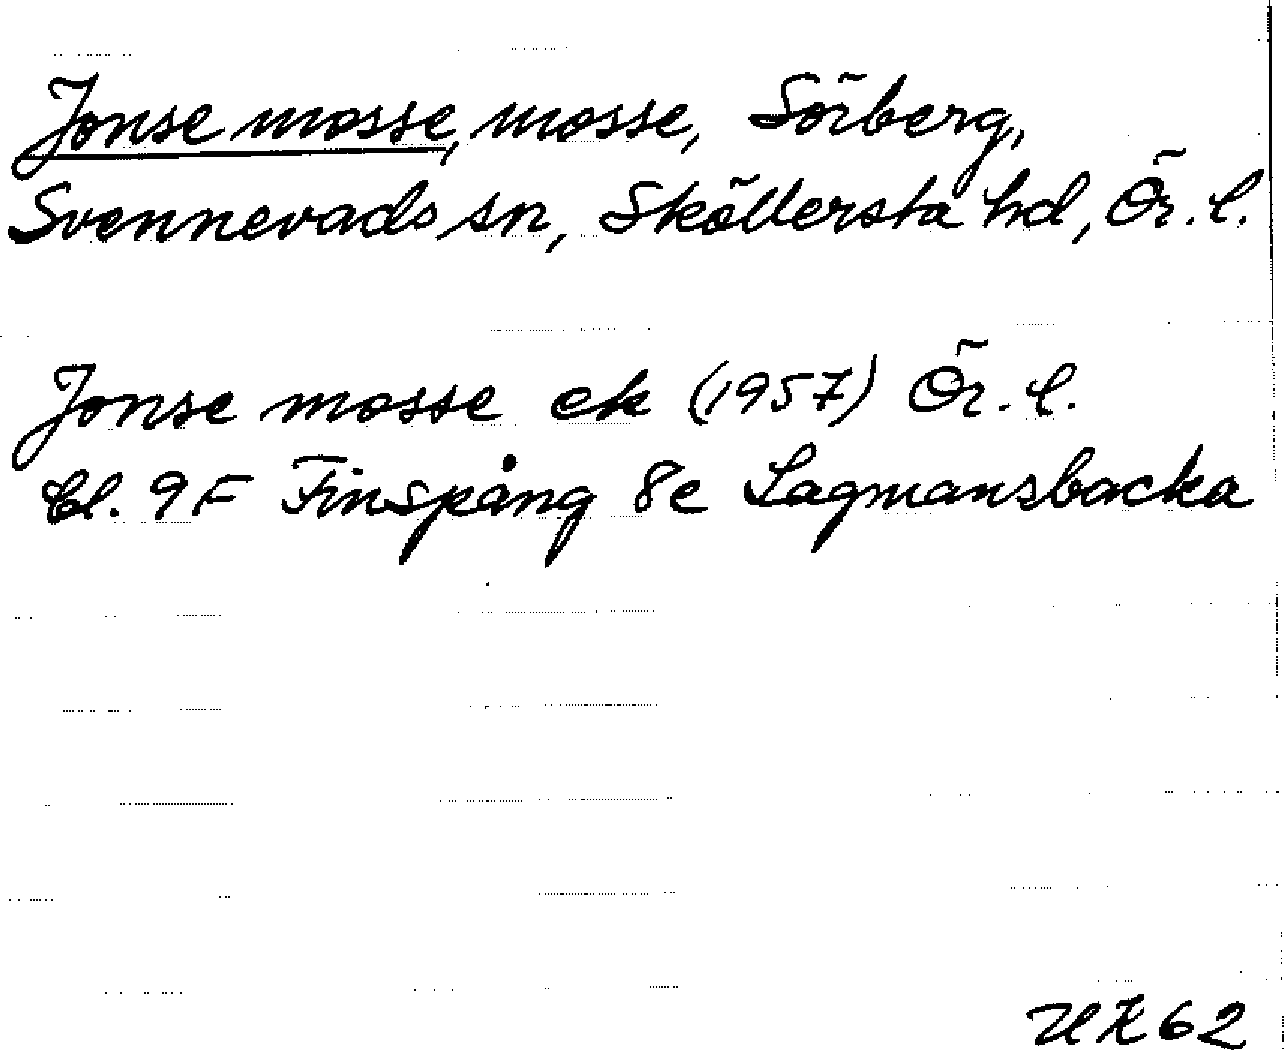 Jonse mosse, mosse, Sörberg,
Svennevads sn, Sköllersta hd, Ör. l.
Jonse mosse ek (1957) Ör. l.
Bl. 9F Finspång 8e Lagmansbacka
UK 62